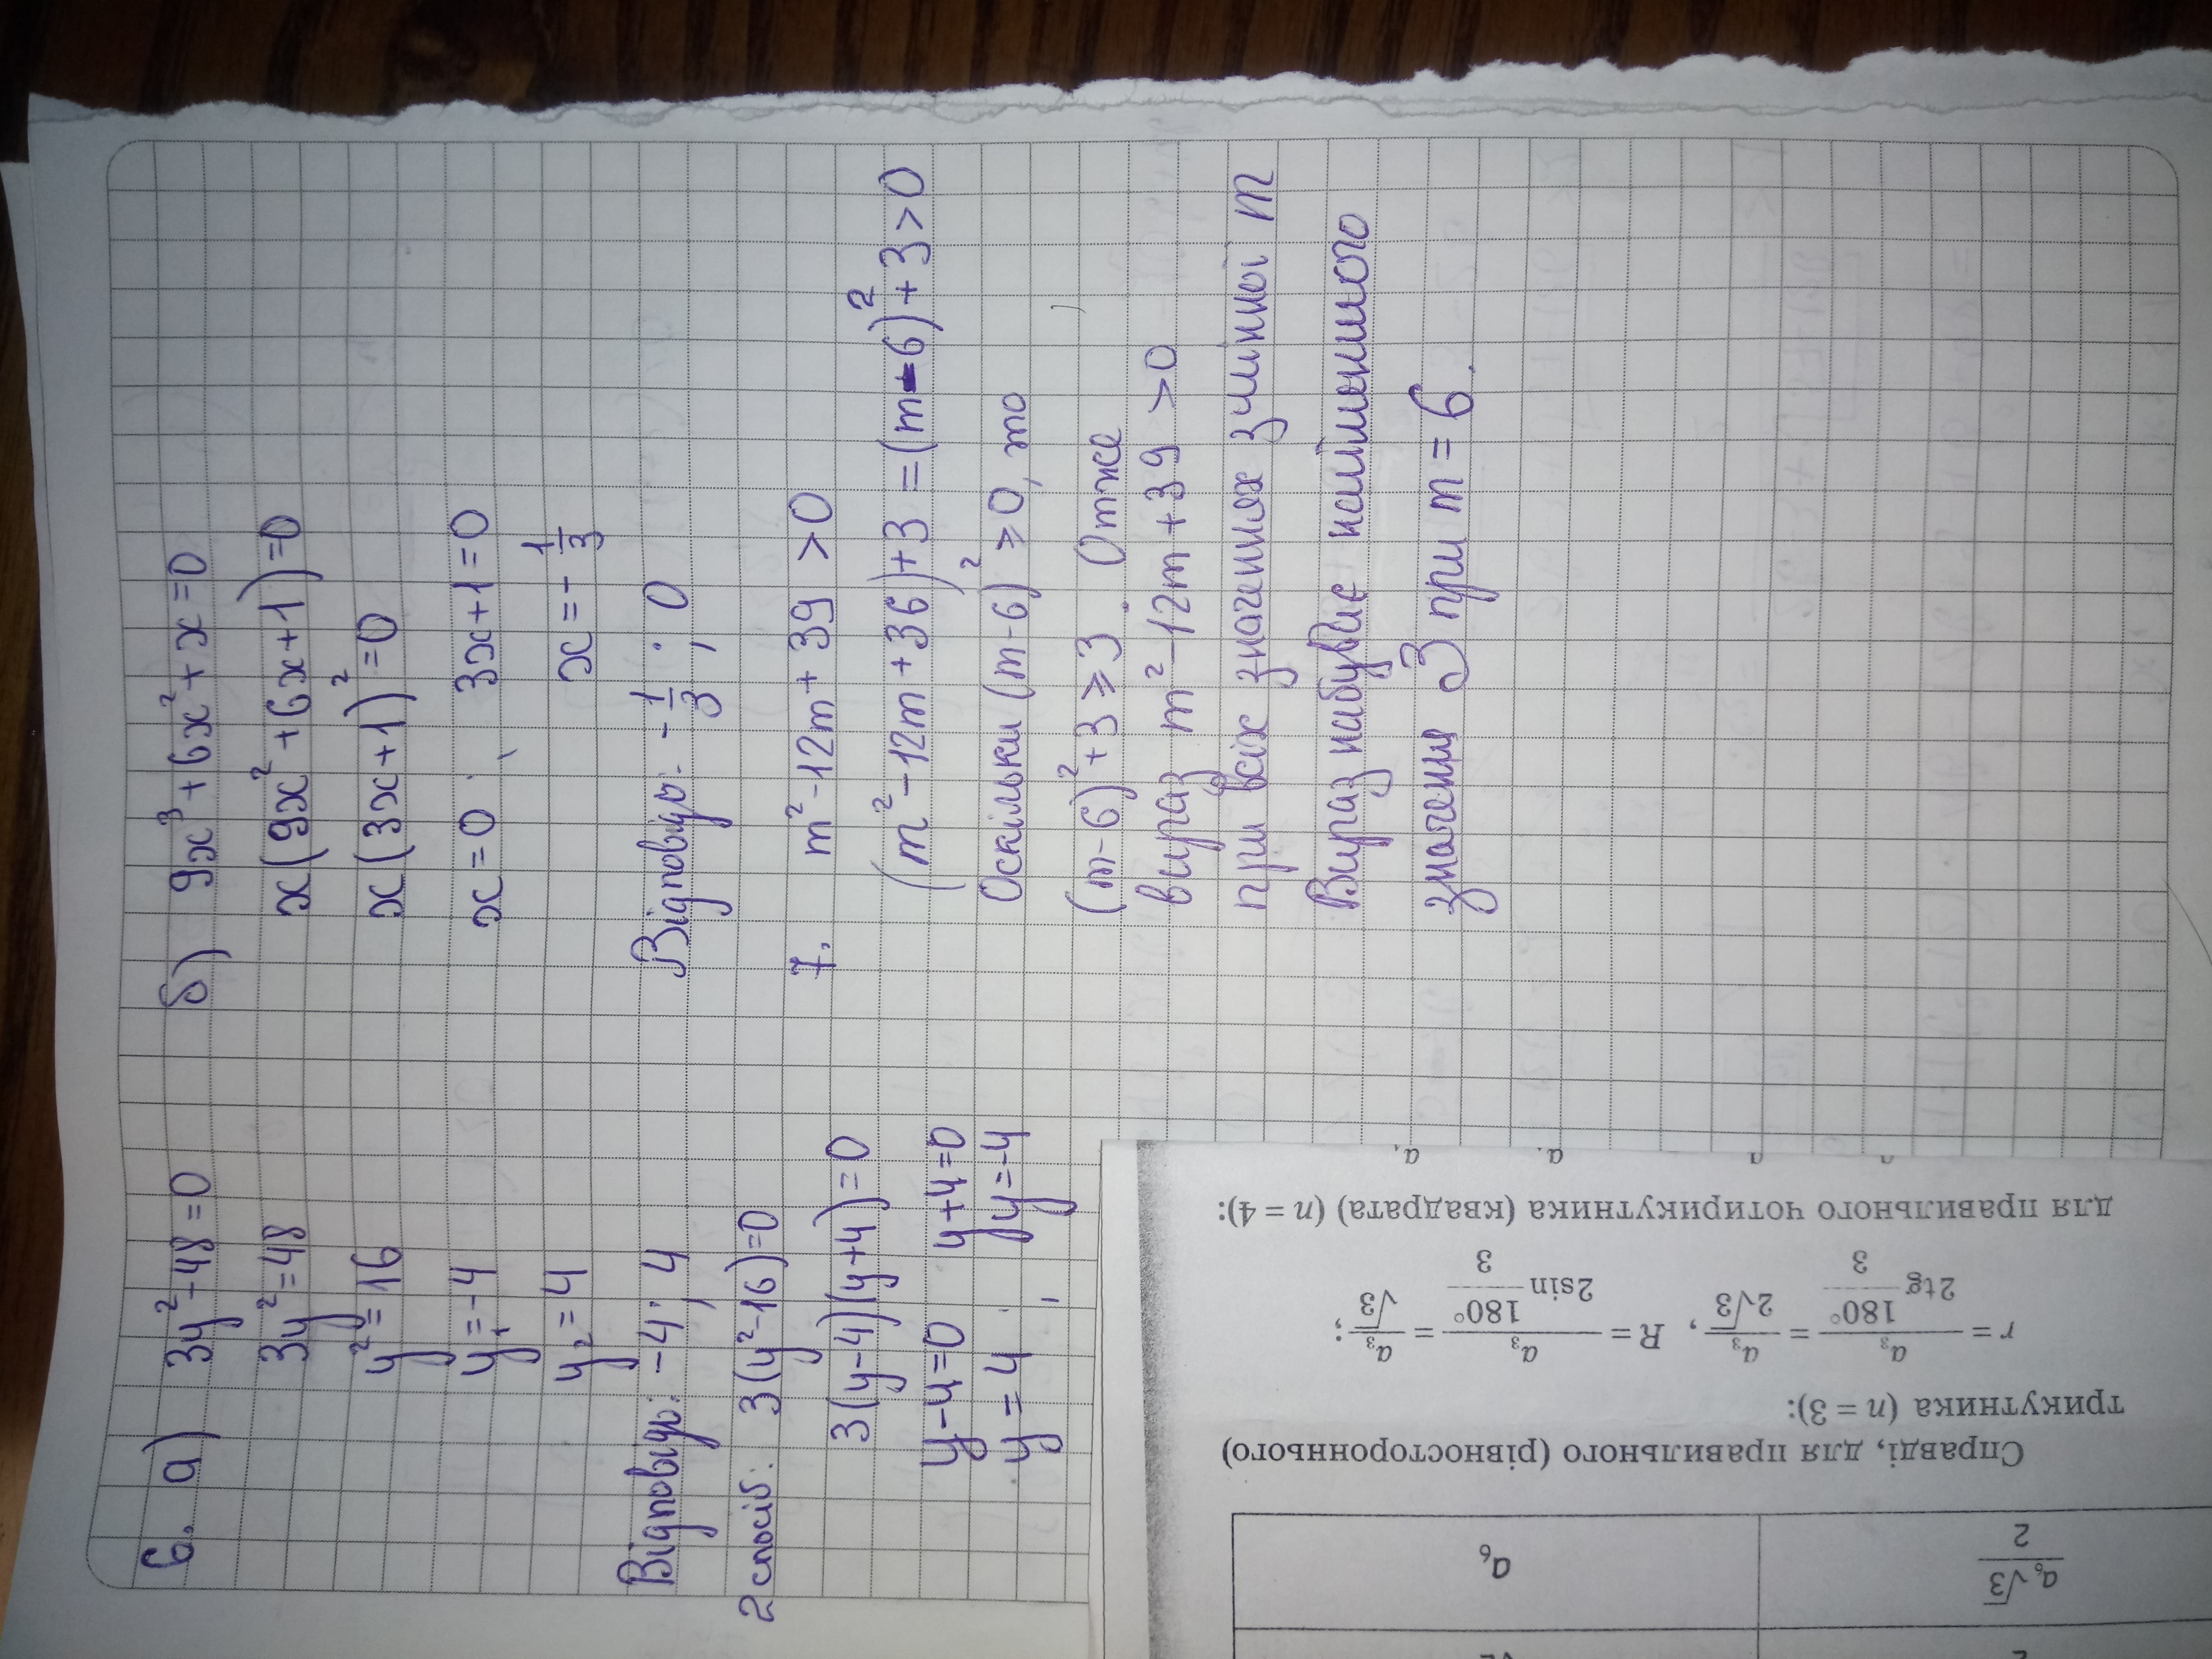 6. а) 3y² - 48 = 0
3y² = 48
y² = 16
y₁ = -4
y₂ = 4
Відповідь: -4; 4
2 спосіб: 3(y² - 16) = 0
3(y - 4)(y + 4) = 0
y - 4 = 0 y + 4 = 0
y = 4 ; y = -4
б) 9x³ + 6x² + x = 0
x(9x² + 6x + 1) = 0
x(3x + 1)² = 0
x = 0 ; 3x + 1 = 0
x = - 1/3
Відповідь: - 1/3 ; 0
7. m² - 12m + 39 > 0
(m² - 12m + 36) + 3 = (m - 6)² + 3 > 0
Оскільки (m - 6)² ⩾ 0, то
(m - 6)² + 3 ⩾ 3. Отже
вираз m² - 12m + 39 > 0
при всіх значеннях змінної m
Вираз набуває найменшого
значення 3 при m = 6.
a₆√3/2
a₆
Справді, для правильного (рівностороннього)
трикутника (n = 3):
r = a₃/(2tg 180°/3) = a₃/(2√3), R = a₃/(2sin 180°/3) = a₃/√3;
для правильного чотирикутника (квадрата) (n = 4):